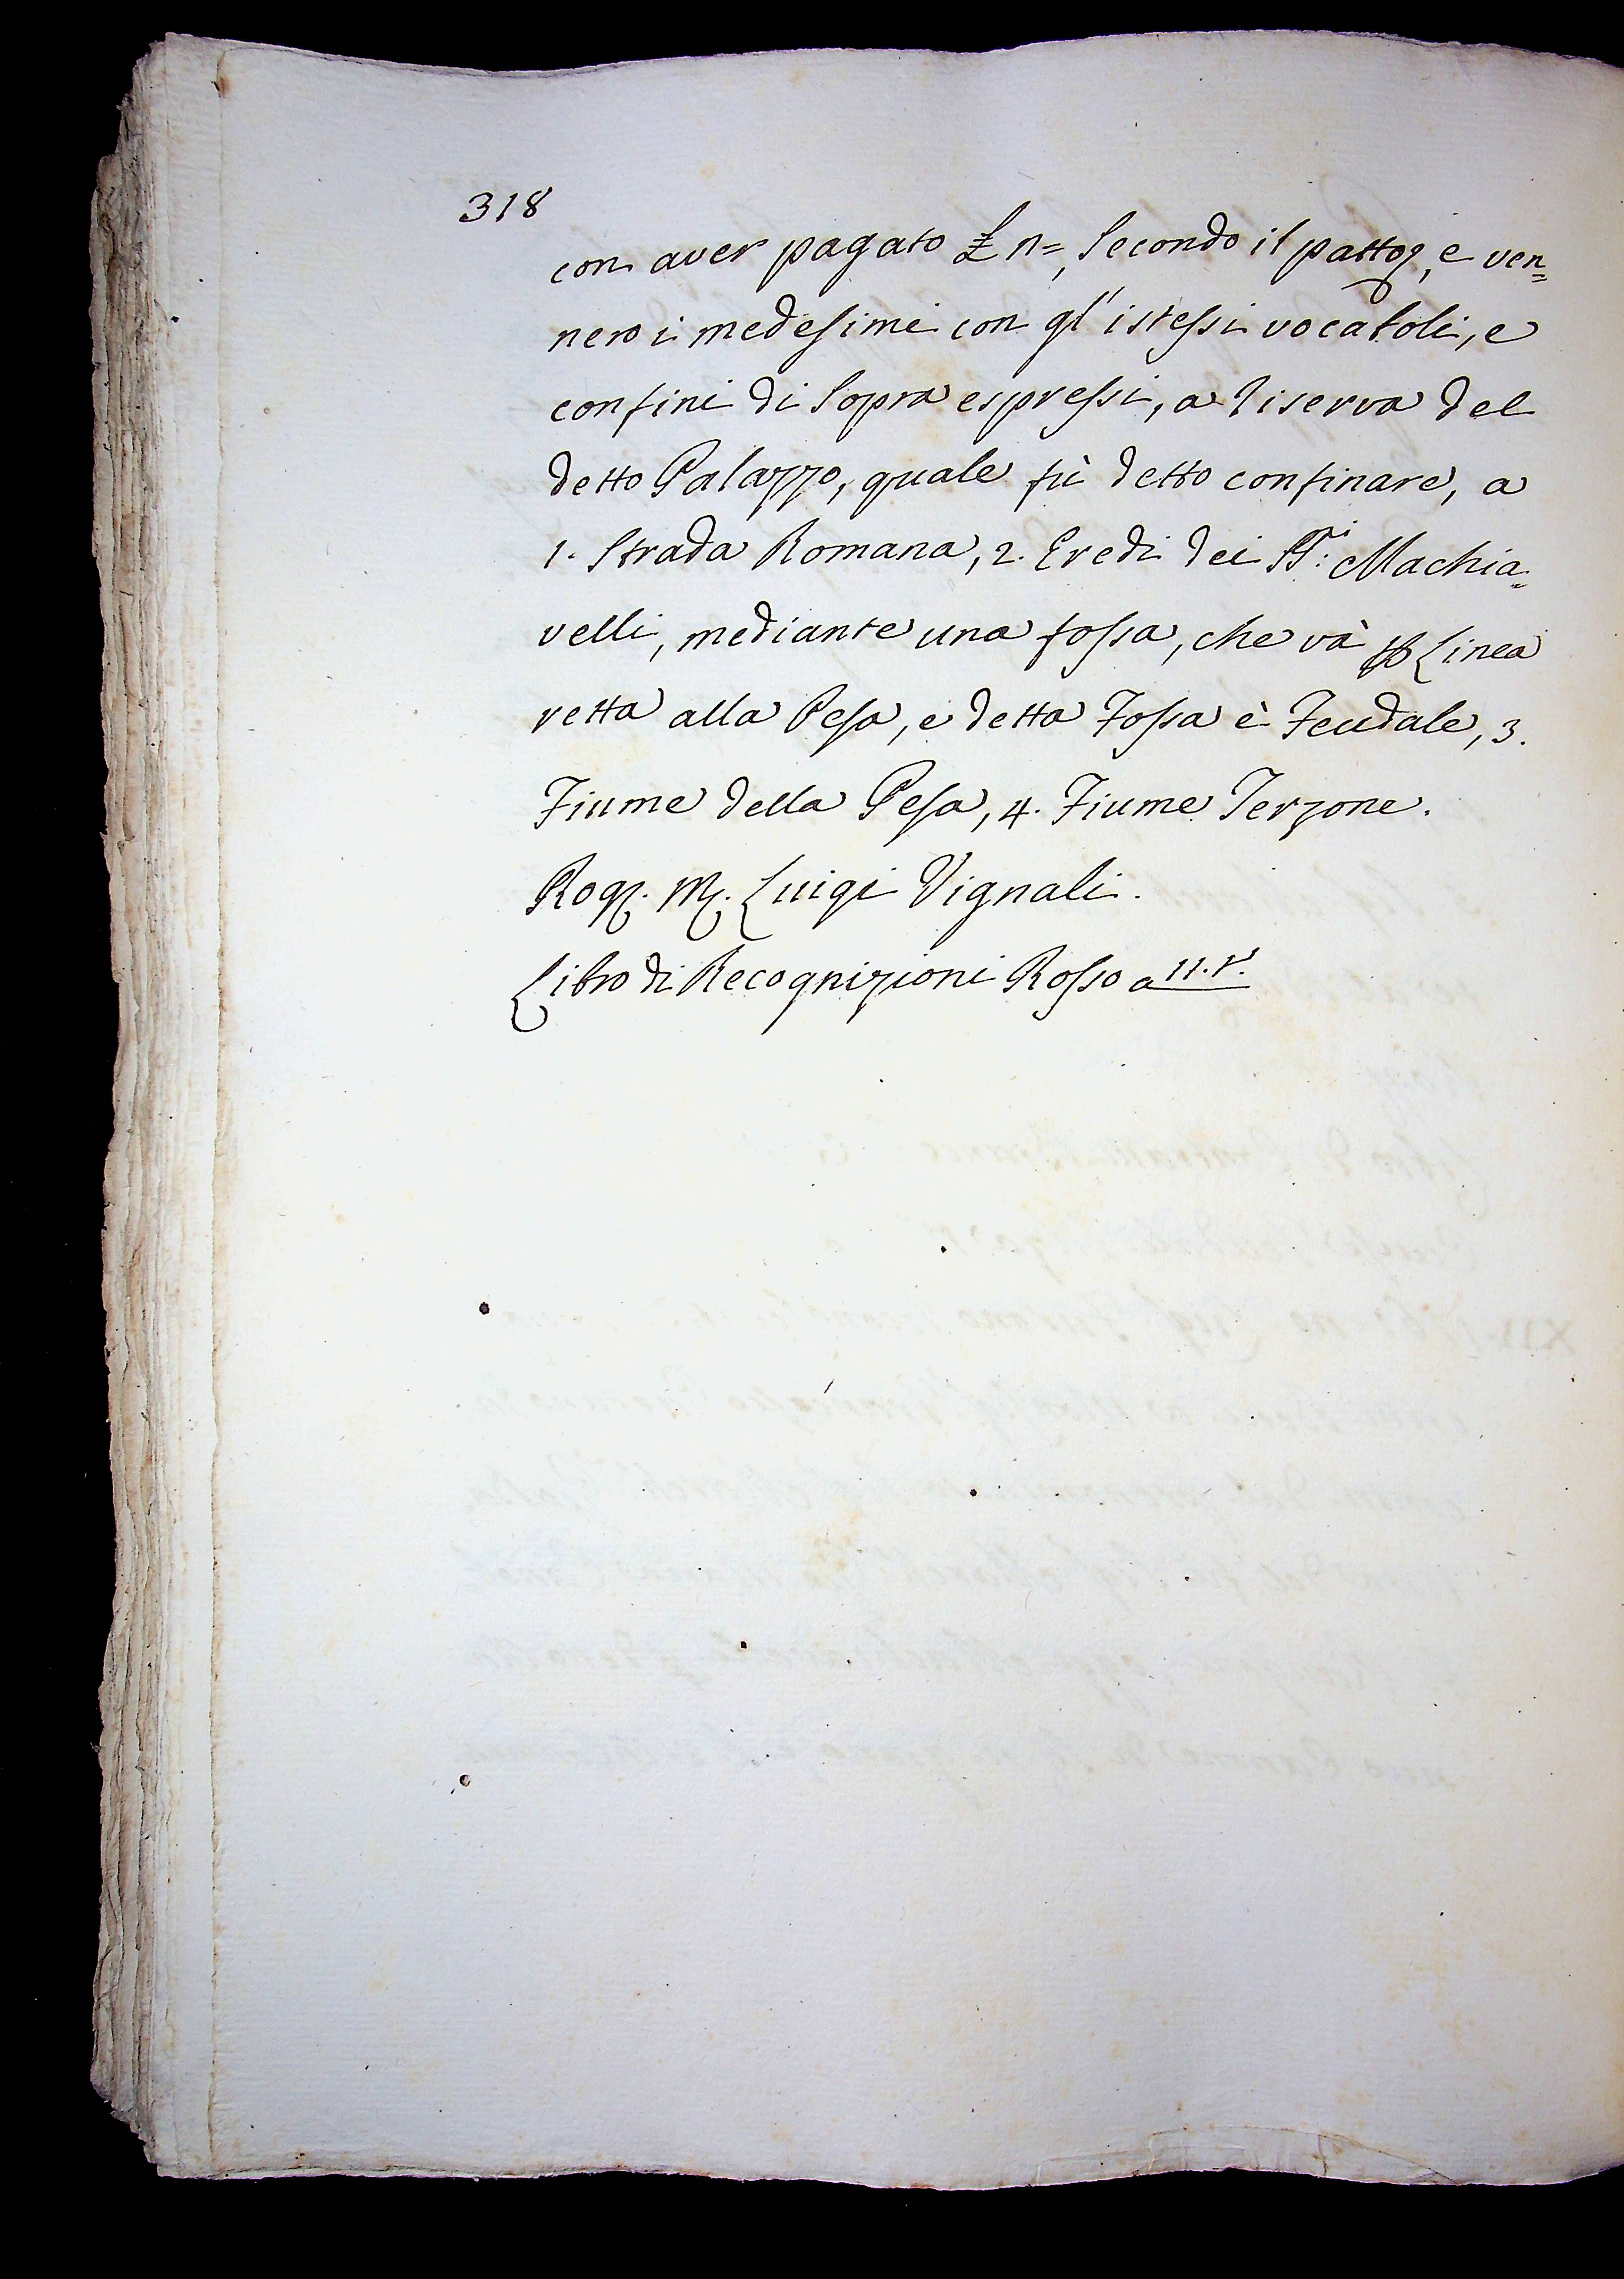 318
con aver pagato £ n=, secondo il patto, e ven=
nero i medesimi con gl'istessi vocaboli, e
confini di sopra espressi, a riserva del
detto Palazzo, quale fù detto confinare, a
1. Strada Romana, 2. Eredi dei SS.ri Machia=
velli, mediante una fossa, che và p Linea
retta alla Pesa, e detta Fossa è Feudale, 3.
Fiume della Pesa, 4. Fiume Terzone.
Rog. M. Luigi Vignali.
Libro di Recognizioni Rosso a 11. r.